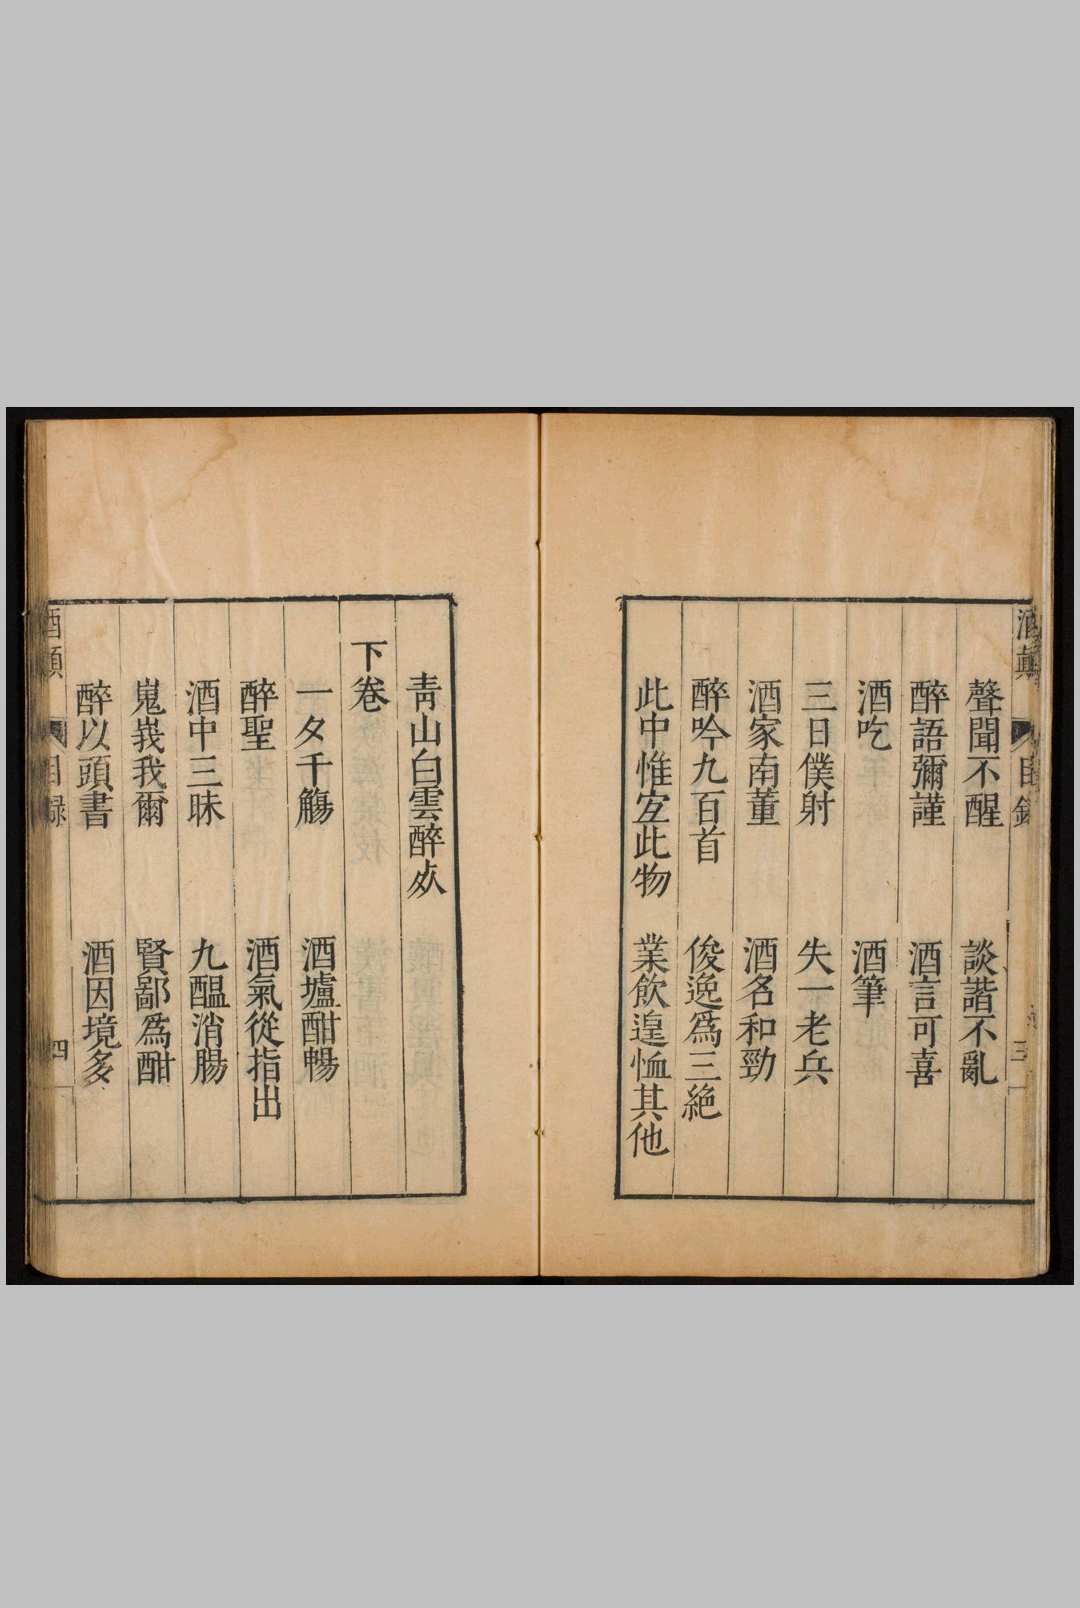 酒顛 目錄 三
聲聞不醒 談諧不亂
醉語彌謹 酒言可喜
酒吃 酒筆
三日僕射 失一老兵
酒家南董 酒名和勁
醉吟九百首 俊逸爲三絶
此中惟宐此物 業飲遑恤其他
青山白雲醉㪽
下卷
一夕千觴 酒壚酣暢
醉聖 酒氣從指出
酒中三昧 九醖消腸
嵬峩我爾 賢鄙爲酣
醉以頭書 酒因境多
酒顛 目録 四